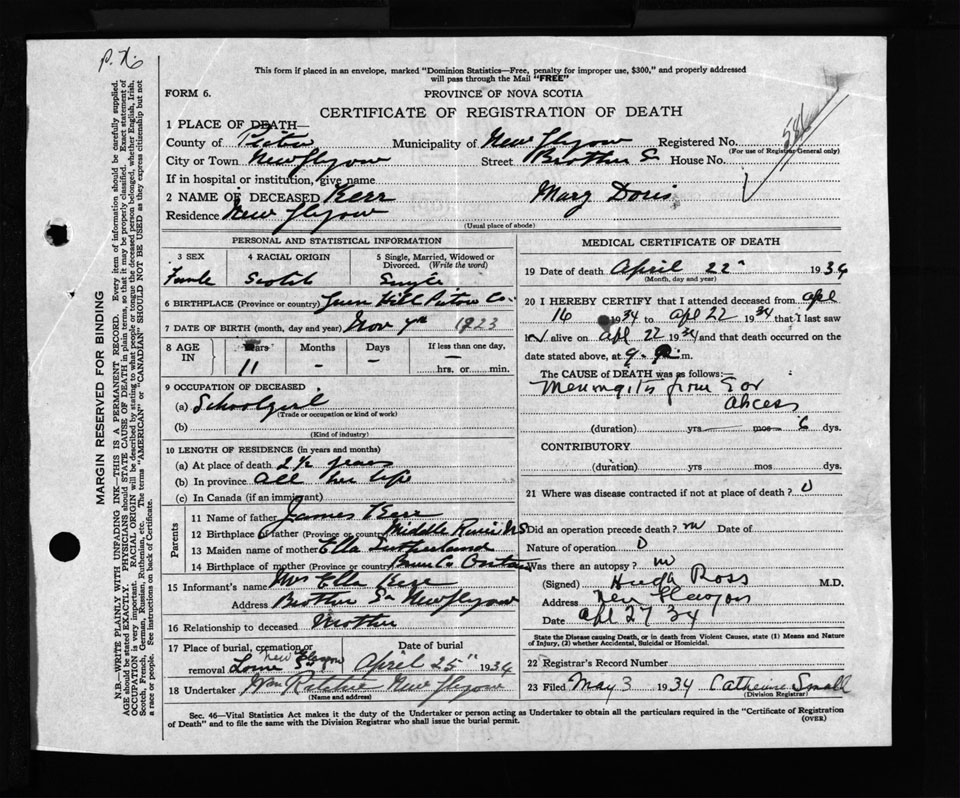 This form if placed in an envelope, marked "Dominion Statistics—Free, penalty for improper use, $300," and properly addressed
will pass through the Mail "FREE"
FORM 6.
PROVINCE OF NOVA SCOTIA
CERTIFICATE OF REGISTRATION OF DEATH
1 PLACE OF DEATH—
County of Pictou Municipality of New Glasgow Registered No.
(For use of Registrar General only)
City or Town New Glasgow Street Brother St House No.
If in hospital or institution, give name
2 NAME OF DECEASED Kerr Mary Doris
Residence New Glasgow
(Usual place of abode)
PERSONAL AND STATISTICAL INFORMATION
3 SEX 4 RACIAL ORIGIN 5 Single, Married, Widowed or Divorced. (Write the word)
Female Scotch Single
6 BIRTHPLACE (Province or country) Green Hill Pictou Co.
7 DATE OF BIRTH (month, day and year) Nov 7th 1923
8 AGE IN Years Months Days If less than one day,
11 - - — hrs. or min.
9 OCCUPATION OF DECEASED
(a) Schoolgirl
(Trade or occupation or kind of work)
(b)
(Kind of industry)
10 LENGTH OF RESIDENCE (in years and months)
(a) At place of death 2½ years
(b) In province all her life
(c) In Canada (if an immigrant)
Parents
11 Name of father James Kerr
12 Birthplace of father (Province or country) Middle River N S
13 Maiden name of mother Ella Sutherland
14 Birthplace of mother (Province or country) Bruce Co. Ontario
15 Informant's name Mrs Ella Kerr
Address Brother St New Glasgow
16 Relationship to deceased Mother
17 Place of burial, cremation or
removal Lorne St New Glasgow April 25" 1934
18 Undertaker Wm Ritchie New Glasgow
(Name and address)
MEDICAL CERTIFICATE OF DEATH
19 Date of death April 22" 1934
(Month, day and year)
20 I HEREBY CERTIFY that I attended deceased from apl
16 1934 to apl 22 1934 that I last saw
alive on apl 22 1934 and that death occurred on the
date stated above, at 9 m.
The CAUSE of DEATH was as follows:—
Meningitis from Ear
Abcess
(duration) yrs mos 6 dys.
CONTRIBUTORY
(duration) yrs mos dys.
21 Where was disease contracted if not at place of death? 0
Did an operation precede death? no Date of
Nature of operation 0
Was there an autopsy? no
(Signed) Hugh Ross M.D.
Address New Glasgow
Date apl 27 34
State the Disease causing Death, or in death from Violent Causes, state (1) Means and Nature
of Injury, (2) whether Accidental, Suicidal or Homicidal.
22 Registrar's Record Number
23 Filed May 3 1934 Catherine Small
(Division Registrar)
Sec. 46—Vital Statistics Act makes it the duty of the Undertaker or person acting as Undertaker to obtain all the particulars required in the "Certificate of Registration
of Death" and to file the same with the Division Registrar who shall issue the burial permit.
(OVER)
MARGIN RESERVED FOR BINDING
N.B.—WRITE PLAINLY WITH UNFADING INK—THIS IS A PERMANENT RECORD. Every item of information should be carefully supplied.
AGE should be stated EXACTLY. PHYSICIANS should STATE CAUSE OF DEATH in plain terms, so that it may be properly classified. Exact statement of
OCCUPATION is very important. RACIAL ORIGIN will be described by stating to what people or tongue the deceased person belonged, whether English, Irish,
Scotch, French, German, Russian, Ruthenian, etc. The terms "AMERICAN" or "CANADIAN" SHOULD NOT BE USED as they express citizenship but not
a race or people. See instructions on back of Certificate.